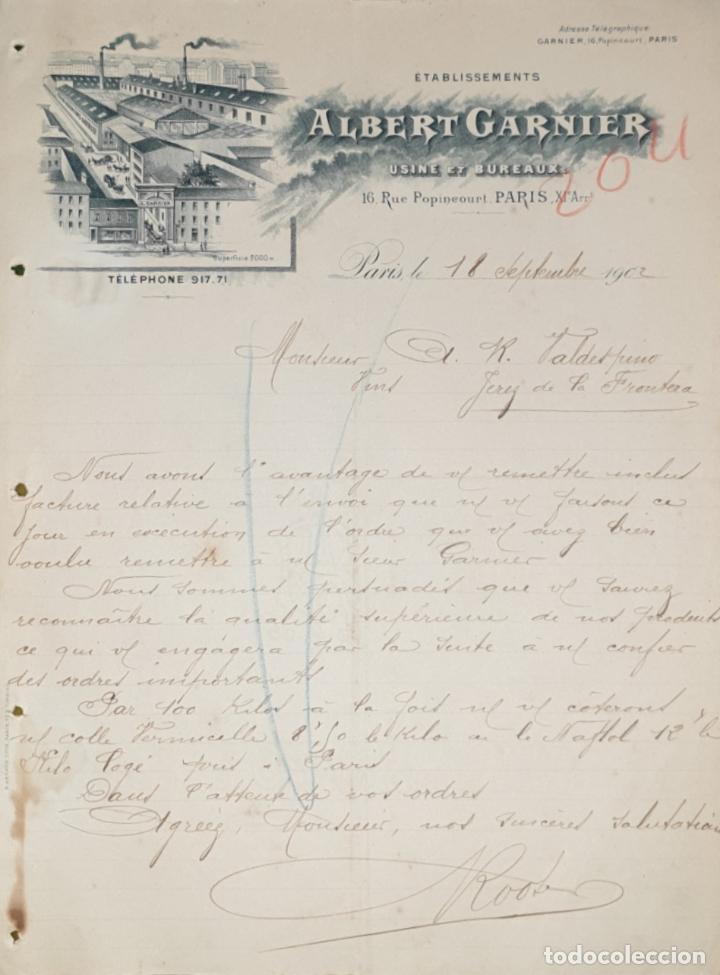 Adresse Télégraphique
GARNIER, 16, Popincourt, PARIS
ÉTABLISSEMENTS
ALBERT GARNIER
USINE ET BUREAUX:
16, Rue Popincourt, PARIS, XIe Arrt
A. GARNIER
Superficie 2000 m
TÉLÉPHONE 917.71
Paris, le 18 Septembre 1902
Monsieur A. R. Valdespino
Vins Jerez de la Frontera
Nous avons l'avantage de vs remettre inclus
facture relative à l'envoi que ns vs faisons ce
jour en execution de l'ordre que vs avez bien
voulu remettre à ns Sieur Garnier
Nous sommes persuadés que vs saurez
reconnaître la qualité supérieure de nos produits
ce qui vs engagera par la suite à ns confier
des ordres importants
Par 100 Kilos à la fois ns vs côterons
ns colle Vermicelle 8f50 le kilo le Naftol 12f le
Kilo logé pris à Paris
Dans l'attente de vos ordres
Agréez, Monsieur, nos sincères salutations
todocoleccion